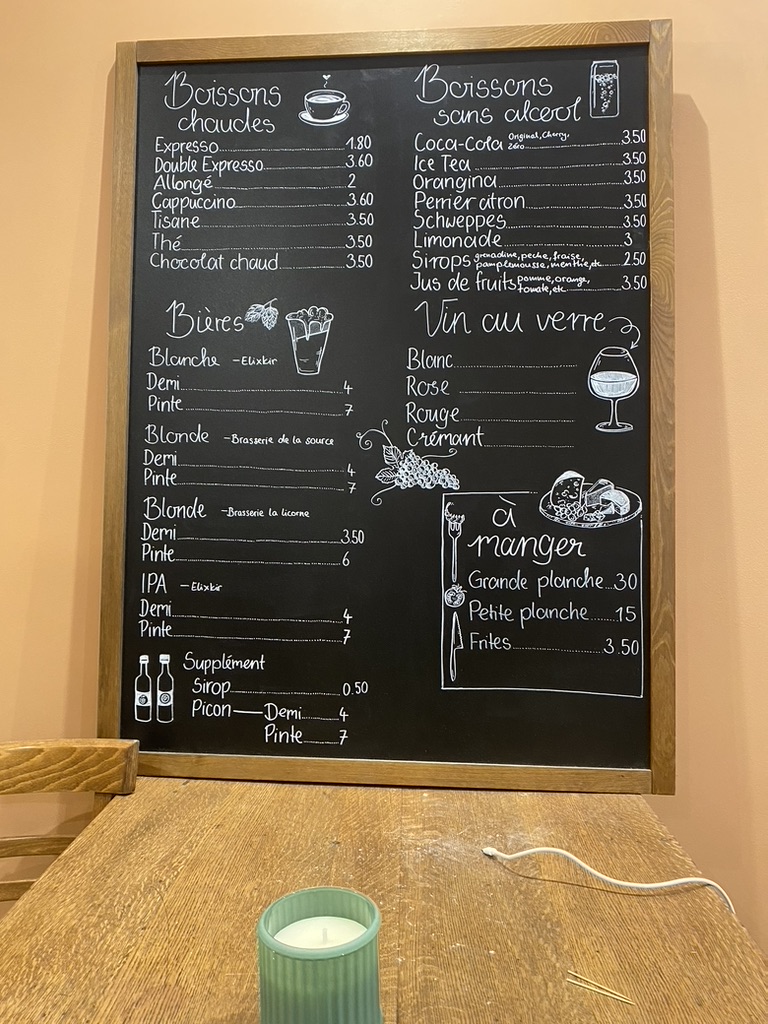 Boissons
chaudes
Expresso 1.80
Double Expresso 3.60
Allongé 2
Cappuccino 3.60
Tisane 3.50
Thé 3.50
Chocolat chaud 3.50
Bières
Blanche - Elixkir
Demi 4
Pinte 7
Blonde - Brasserie de la source
Demi 4
Pinte 7
Blonde - Brasserie la licorne
Demi 3.50
Pinte 6
IPA - Elixkir
Demi 4
Pinte 7
Supplément
Sirop 0.50
Picon — Demi 4
Pinte 7
Boissons
sans alcool
Coca-Cola Original, Cherry, Zéro 3.50
Ice Tea 3.50
Orangina 3.50
Perrier citron 3.50
Schweppes 3.50
Limonade 3
Sirops grenadine, peche, fraise, pamplemousse, menthe, etc 2.50
Jus de fruits pomme, orange, tomate, etc 3.50
Vin au verre
Blanc
Rose
Rouge
Crémant
à
manger
Grande planche 30
Petite planche 15
Frites 3.50